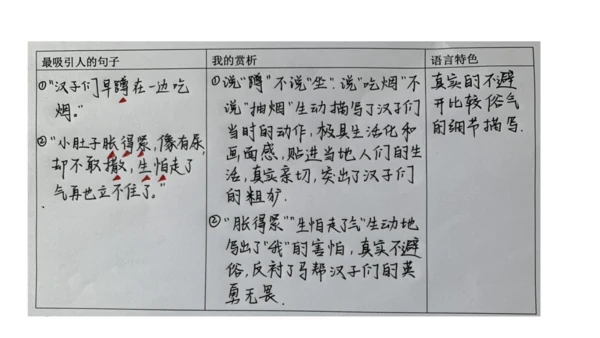 最吸引人的句子
我的赏析
语言特色
①“汉子们早蹲在一边吃
烟。”
②“小肚子胀得紧,像有尿,
却不敢撒,生怕走了
气再也立不住了。”
①说“蹲”不说“坐”.说“吃烟”不
说“抽烟”生动描写了汉子们
当时的动作,极具生活化和
画面感,贴进当地人们的生
活,真实亲切,突出了汉子们
的粗犷.
②“胀得紧”“生怕走了气”生动地
写出了“我”的害怕,真实不避
俗,反衬了马帮汉子们的英
勇无畏.
真实的不避
开比较俗气
的细节描写.